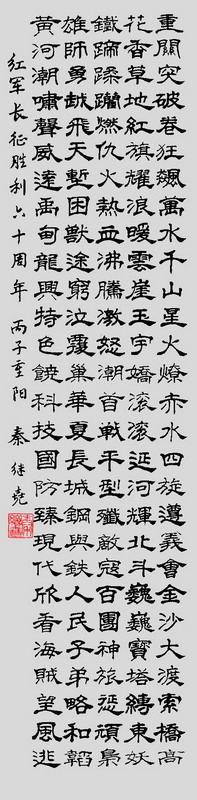 重關突破卷狂飆萬水千山星火燎赤水四旋遵義會金沙大渡索橋高
花香草地紅旗耀浪暖雲崖玉宇嬌滾滾延河輝北斗巍巍寶塔縛東妖
鐵蹄蹂躪燃仇火熱血沸騰激怒潮首戰平型殲敵寇百團神旅懲頑梟
雄師勇越飛天塹困獸途窮泣覆巢華夏長城鋼與鐵人民子弟略和韜
黃河潮嘯聲威達禹甸龍興特色饒科技國防臻現代欣看海賊望風逃
红军长征胜利六十周年 丙子重阳 秦继尧